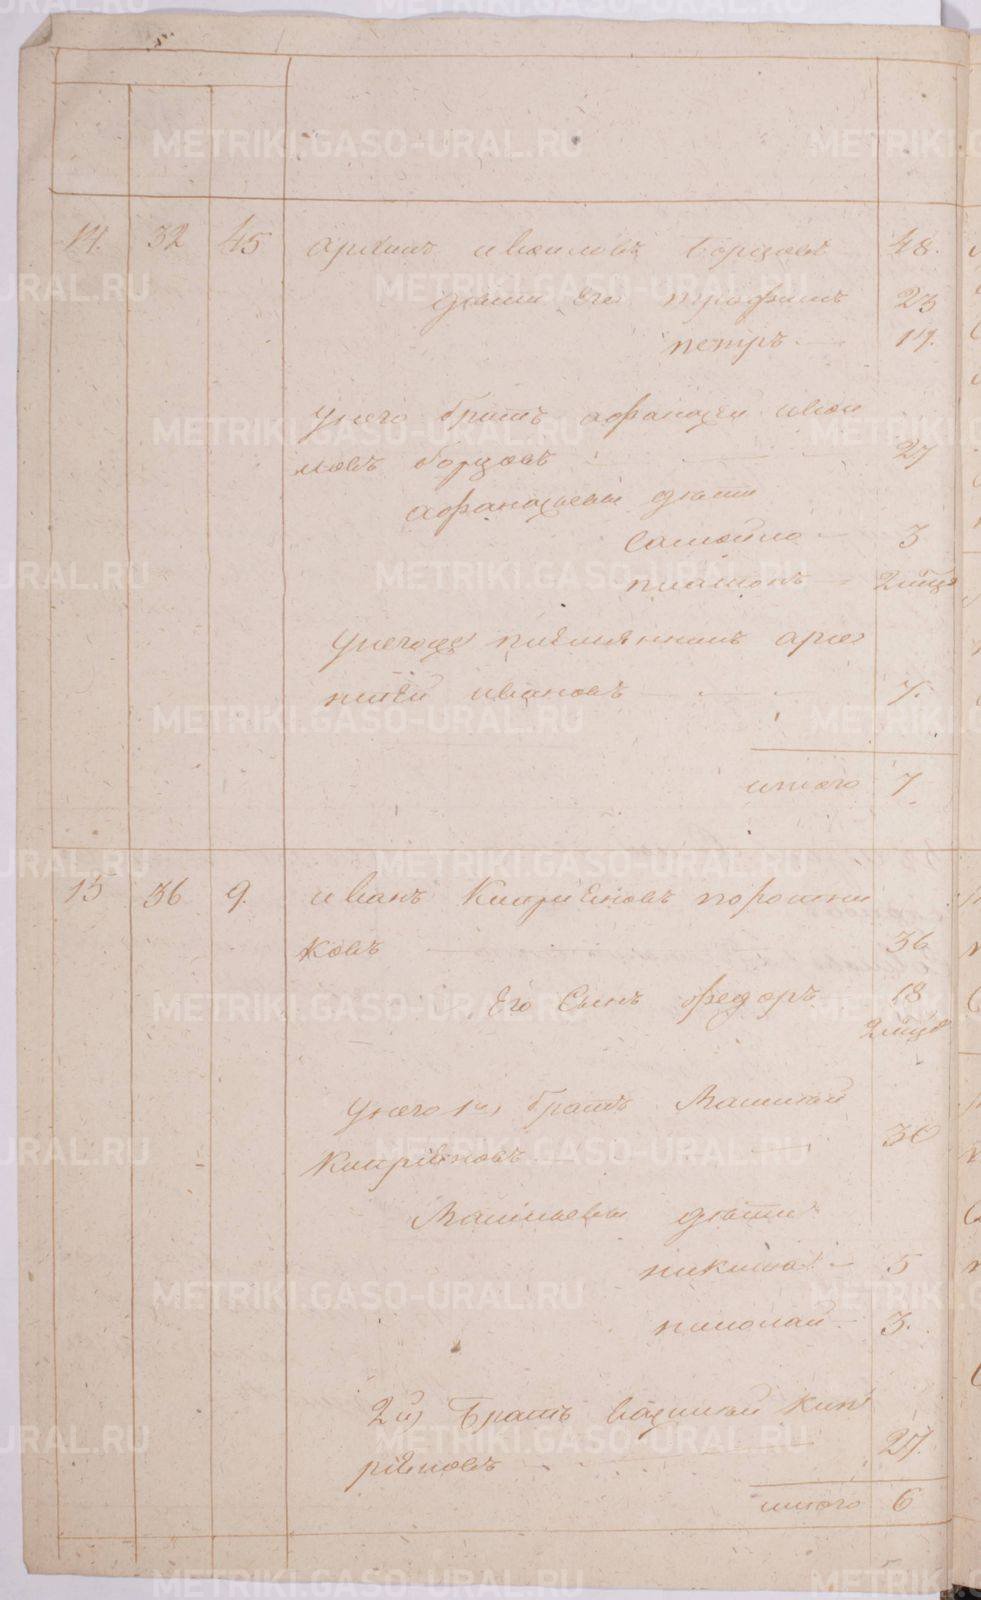 14. 32 45 Архипъ Ивановъ Борцовъ 48.
дѣти Его трофимъ 23
петръ 14.
У него братъ афанасей ива
новъ борцовъ 27
афанасьевы дѣти
самойло 3
платонъ 2 мѣц
племянникъ арсе
нтей ивановъ 7.
итого 7
15 36 9. иванъ Киприяновъ порошни
ковъ 36
Его Сынъ федоръ 18
2 мѣц
У него 1й братъ Василей
Киприяновъ 30
Васильевы дѣти
никита 5
николай 3.
2й братъ Василей Кип
рияновъ 27.
итого 6
METRIKI.GASO-URAL.RU